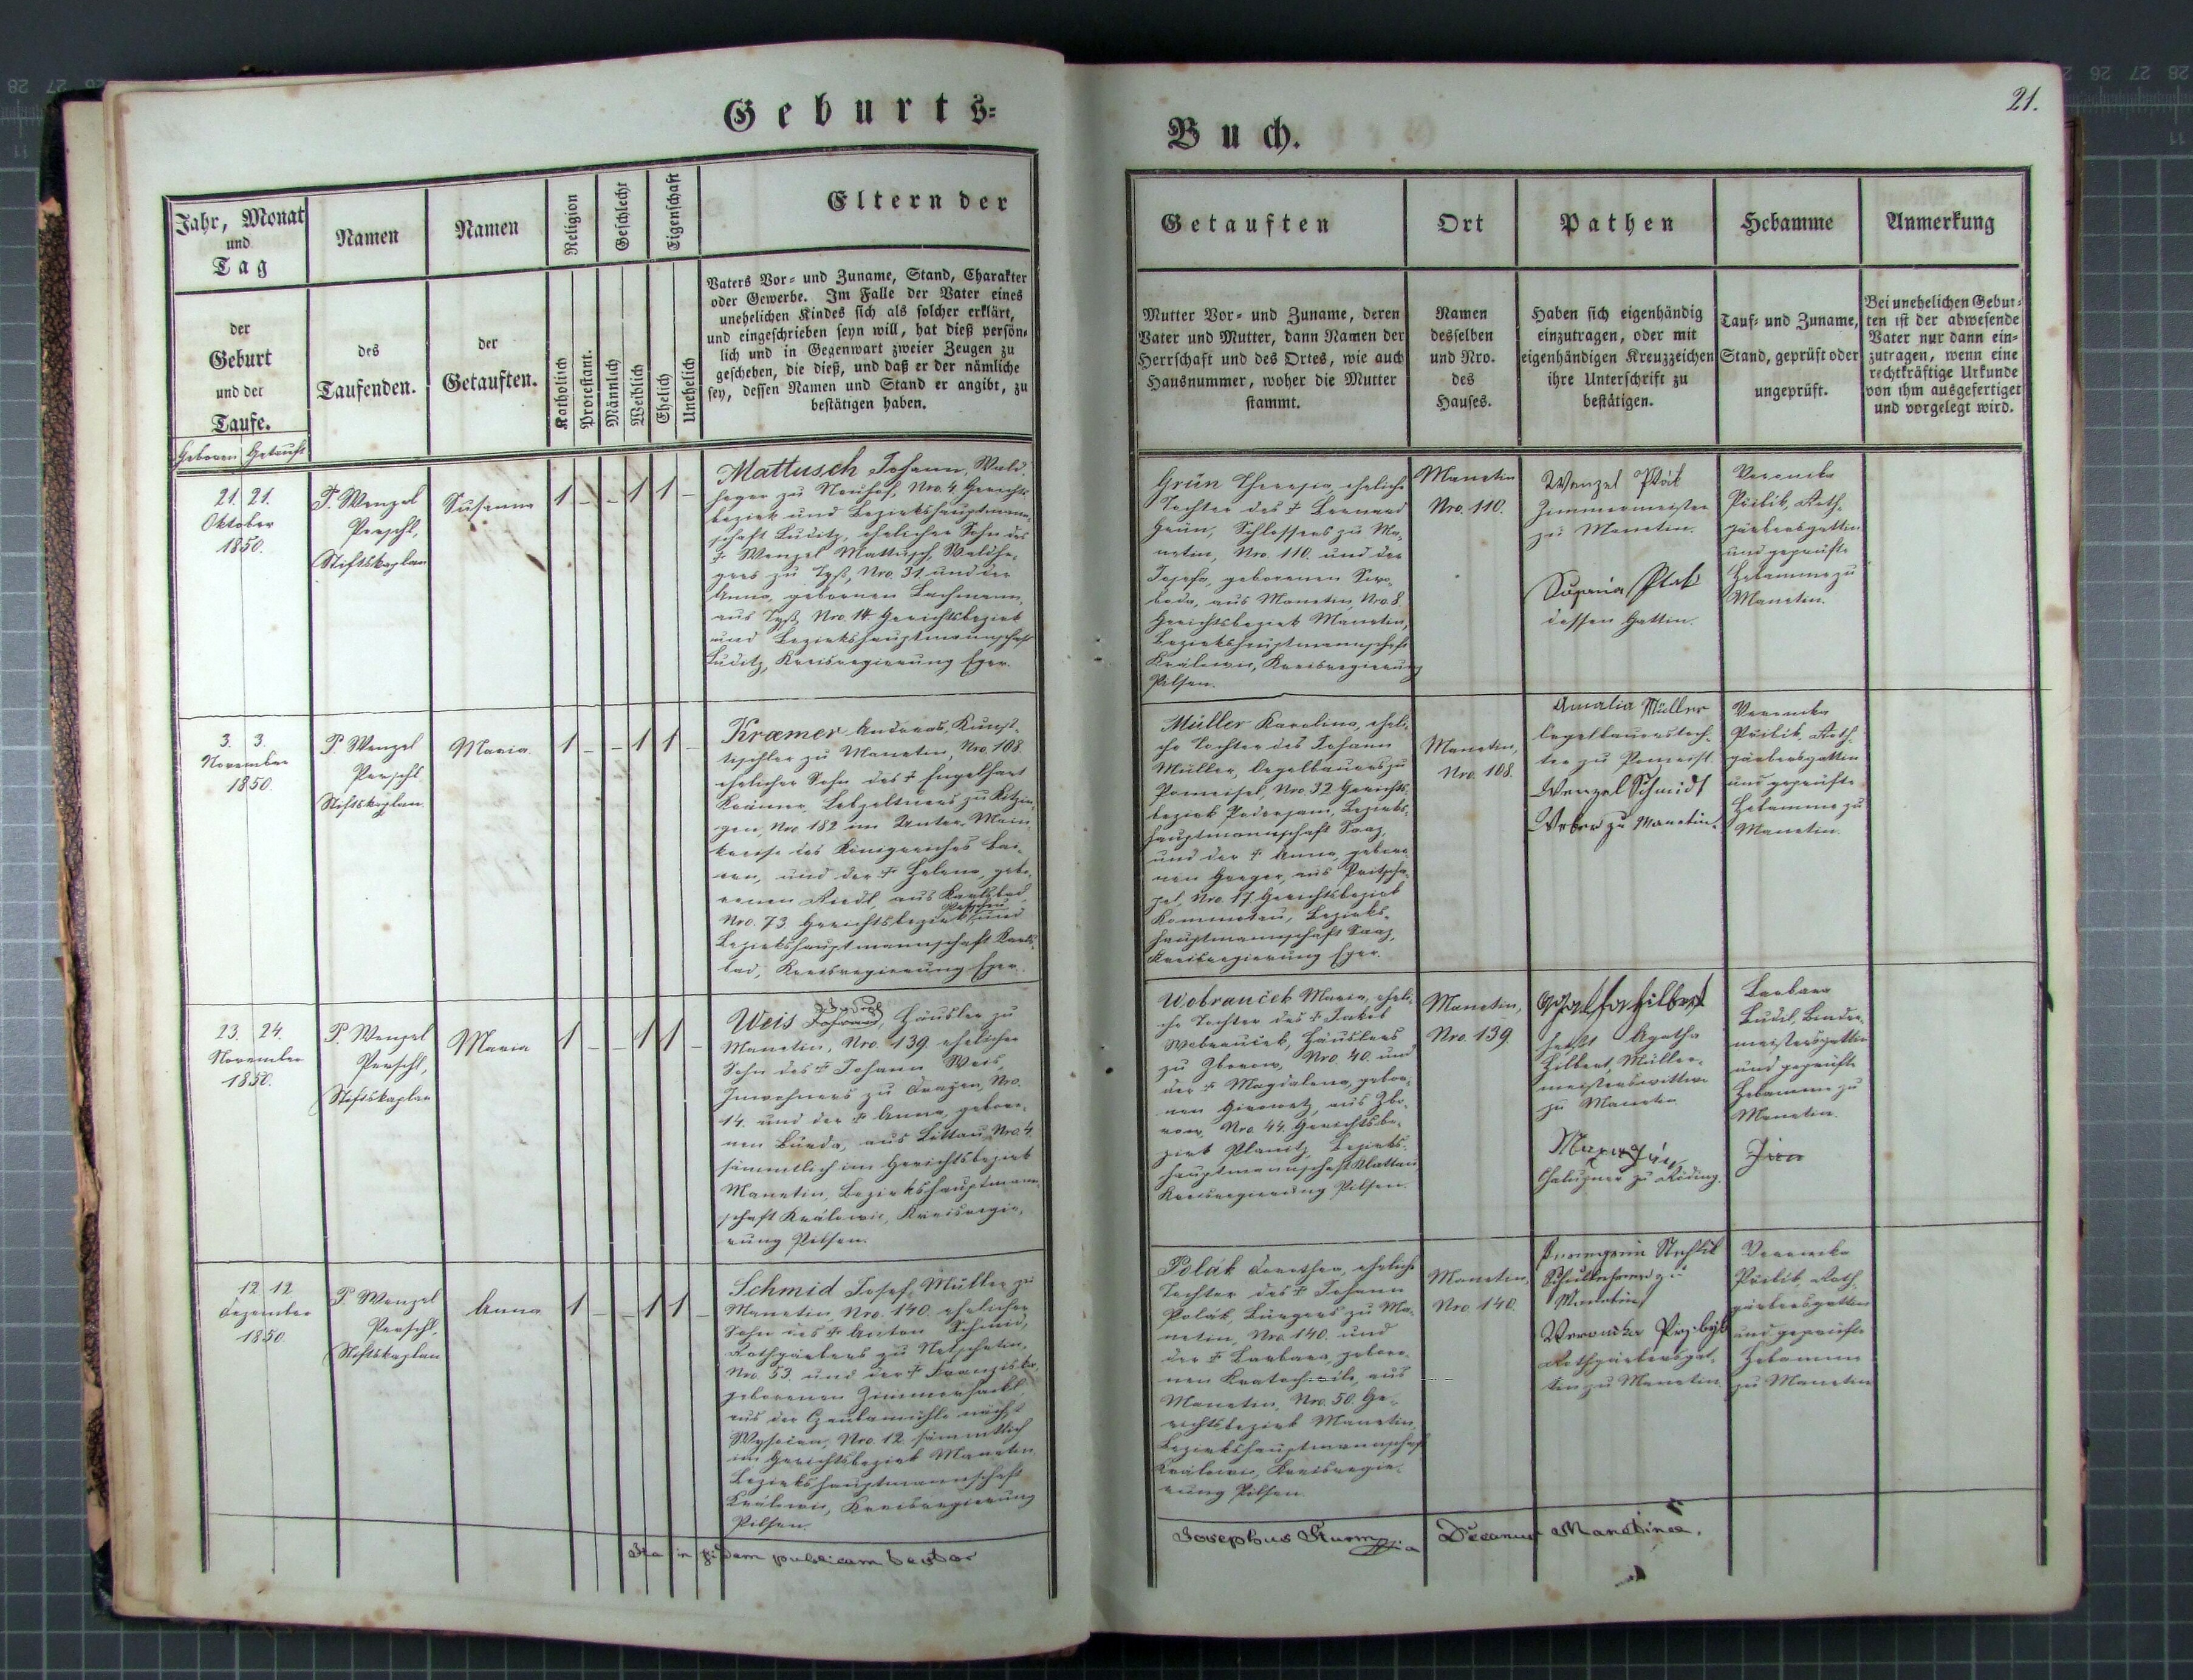 Geburts=
Buch.
21.
Jahr, Monat
und
Tag
der
Geburt
und der
Taufe.
Geboren Getauft
Namen
des
Taufenden.
Namen
der
Getauften.
Religion
Katholisch
Protestant.
Geschlecht
Männlich
Weiblich
Eigenschaft
Ehelich
Unehelich
Eltern der
Vaters Vor= und Zuname, Stand, Charakter
oder Gewerbe. Im Falle der Vater eines
unehelichen Kindes sich als solcher erklärt,
und eingeschrieben seyn will, hat dieß persön=
lich und in Gegenwart zweier Zeugen zu
geschehen, die dieß, und daß er der nämliche
sey, dessen Namen und Stand er angibt, zu
bestätigen haben.
Getauften
Mutter Vor= und Zuname, deren
Vater und Mutter, dann Namen der
Herrschaft und des Ortes, wie auch
Hausnummer, woher die Mutter
stammt.
Ort
Namen
desselben
und Nro.
des
Hauses.
Pathen
Haben sich eigenhändig
einzutragen, oder mit
eigenhändigen Kreuzzeichen
ihre Unterschrift zu
bestätigen.
Hebamme
Tauf= und Zuname,
Stand, geprüft oder
ungeprüft.
Anmerkung
Bei unehelichen Gebur=
ten ist der abwesende
Vater nur dann ein=
zutragen, wenn eine
rechtkräftige Urkunde
von ihm ausgefertiget
und vorgelegt wird.
21. 21.
Oktober
1850.
P. Wenzel
Perschl,
Stiftskaplan
Susanna
1 – – 1 1 –
Mattusch Johann, Wald-
heger zu Neuhof, Nro. 4 Gerichts-
bezirk und Bezirkshauptmann-
schaft Luditz, ehelicher Sohn des
† Wenzel Mattusch, Waldhe-
gers zu Tyß, Nro. 31 und der
Anna, gebornen Bachmann,
aus Tyß, Nro. 14 Gerichtsbezirk
und Bezirkshauptmannschaft
Luditz, Kreisregierung Eger.
Grün Theresia, eheliche
Tochter des † Bernard
Grün, Schlossers zu Ma-
netin, Nro. 110. und der
Josefa, geborenen Swo-
boda, aus Manetin, Nro. 8.
Gerichtsbezirk Manetin,
Bezirkshauptmannschaft
Kralowic, Kreisregierung
Pilsen.
Manetin
Nro. 110.
Wenzel Pták
Zimmermeister
zu Manetin.
dessen Gattin.
Veronika
Pribik, Roth-
gärbersgattin
und geprüfte
Hebamme zu
Manetin.
3. 3.
November
1850.
P. Wenzel
Perschl
Stiftskaplan.
Maria
1 – – 1 1 –
Kramer Andreas, Kunst-
tischler zu Manetin, Nro. 108.
ehelicher Sohn des † Engelhart
Kramer, Lebzeltners zu Kitzin-
gen, Nro. 182 im Unter-Main-
kreise des Königreiches Bai-
ern, und der † Helena, gebo-
renen Riedl, aus Karlsbad
Nro. 73. Gerichtsbezirk und
Bezirkshauptmannschaft Karls-
bad, Kreisregierung Eger.
Müller Karolina, eheli-
che Tochter des Johann
Müller, Segelbauers zu
Pomeisel, Nro. 32 Gerichts-
bezirk Podersam, Bezirks-
hauptmannschaft Saaz,
und der † Anna, gebore-
nen Gregor, aus Pritscha-
pel, Nro. 17. Gerichtsbezirk
Kommotau, Bezirks-
hauptmannschaft Saaz,
Kreisregierung Eger.
Manetin,
Nro. 108.
Amalia Müller
zu Pomeisl.
Wenzel Schmidt
Weber zu Manetin.
Veronika
Pribik, Roth-
gärbersgattin
und geprüfte
Hebamme zu
Manetin.
23. 24.
November
1850.
P. Wenzel
Perschl,
Stiftskaplan
Maria
1 – – 1 1 –
Weis Johann, Häusler zu
Manetin, Nro. 139 ehelicher
Sohn des † Johann Weis,
Inwohners zu Nro.
14. und der † Anna, gebore-
nen Burda, aus Littau, Nro. 4
sämmtlich im Gerichtsbezirk
Manetin, Bezirkshauptmann-
schaft Kralowic, Kreisregie-
rung Pilsen.
Wobrauček Maria, eheli-
che Tochter des † Jakob
Wobrauček, Häuslers
zu Zborow, Nro. 40. und
der † Magdalena, gebor-
nen aus Zbo-
row, Nro. 44. Gerichtsbe-
zirk Planitz, Bezirks-
hauptmannschaft Klattau,
Kreisregierung Pilsen.
Manetin,
Nro. 139
Agatha
Hilbert, Müller-
meisterswittwe
zu Manetin
Chalupner zu
Barbara
Budil, Binder-
meistersgattin
und geprüfte
Hebamme zu
Manetin.
12 12
Dezember
1850.
P. Wenzel
Perschl,
Stiftskaplan
Anna
1 – – 1 1 –
Schmid Josef, Müller zu
Manetin, Nro. 140. ehelicher
Sohn des † Anton Schmid,
Rothgärbers zu Netschetin,
Nro. 53. und der † Franziska,
geborenen Zimmerhackl
aus der nächst
Nro. 12. sämmtlich
im Gerichtsbezirk Manetin
Bezirkshauptmannschaft
Kralowic, Kreisregierung
Pilsen.
Polák Dorothea, eheliche
Tochter des † Johann
Polák, Bürgers zu Ma-
netin, Nro. 140. und
der † Barbara, gebore-
nen Kratochwile, aus
Manetin, Nro. 50. Ge-
richtsbezirk Manetin,
Bezirkshauptmannschaft
Kralowic, Kreisregie-
rung Pilsen.
Manetin,
Nro. 140.
Stehlik
zu
Manetin
Veronika Przbyk
Rothgärbersgat-
tin zu Manetin.
Veronika
Pribik, Roth-
gärbersgattin
und geprüfte
Hebamme
zu Manetin
Ita in fidem publicam testor
Josephus Sturm Decanus Manetinae.